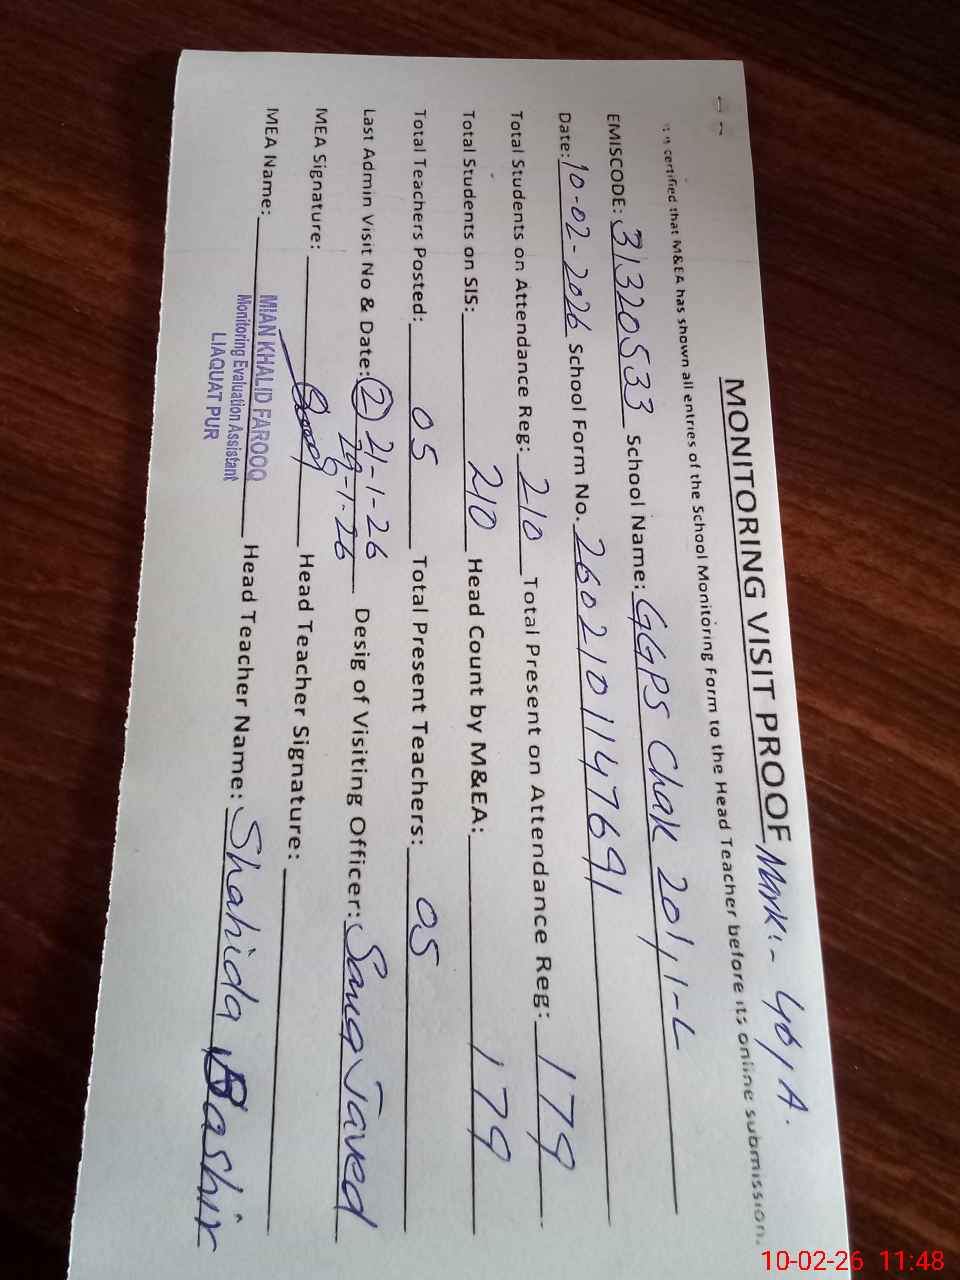 MONITORING VISIT PROOF Mark:- 40, A.
certified that M&EA has shown all entries of the School Monitoring Form to the Head Teacher before its online submission.
EMISCODE: 31320533 School Name: GGPS Chak 201,1-L
Date: 10-02-2026 School Form No. 260210114 7691
Total Students on Attendance Reg: 210 Total Present on Attendance Reg: 179
Total Students on SIS: 210 Head Count by M&EA: 179
Total Teachers Posted: 05 Total Present Teachers: 05
Last Admin Visit No & Date: (2) 21-1-26 Desig of Visiting Officer: Sana Javed
29-1-26
MEA Signature: Head Teacher Signature:
MEA Name: MIAN KHALID FAROOQ Head Teacher Name: Shahida Bashir
Monitoring Evaluation Assistant
LIAQUAT PUR
10-02-26 11:48